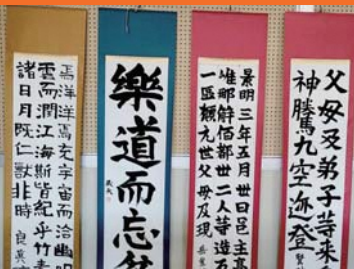 父母及弟子等来
神騰九空迹登
景明三年五月卅日邑主高
唯那解佰都卅二人等造石
一區願元世父母及現
樂道而忘
焉洋洋焉充宇宙而洽幽明
雲而潤江海斯皆紀乎竹素
諸日月既仁獣非時